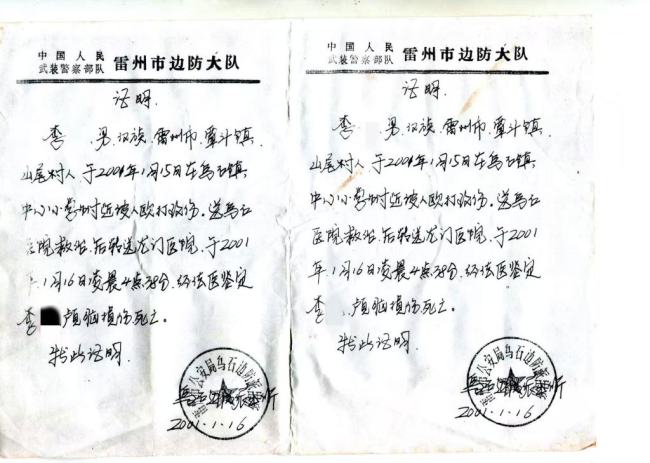 中国人民
武装警察部队 雷州市边防大队
证明
李 男.汉族.雷州市.覃斗镇
山尾村人于2001年1月15日在乌石镇
中心小学附近被人殴打致伤.送乌石
医院救治.后转送龙门医院.于2001
年.1月16日凌晨4点38分.经法医鉴定
李 颅脑损伤死亡。
特此证明.
公安局乌石边防
2001.1.16
中国人民
武装警察部队 雷州市边防大队
证明
李 男.汉族.雷州市.覃斗镇
山尾村人于2001年1月15日在乌石镇
中心小学附近被人殴打致伤.送乌石
医院救治.后转送龙门医院.于2001
年.1月16日凌晨4点38分.经法医鉴定
李 颅脑损伤死亡。
特此证明.
公安局乌石边防
2001.1.16